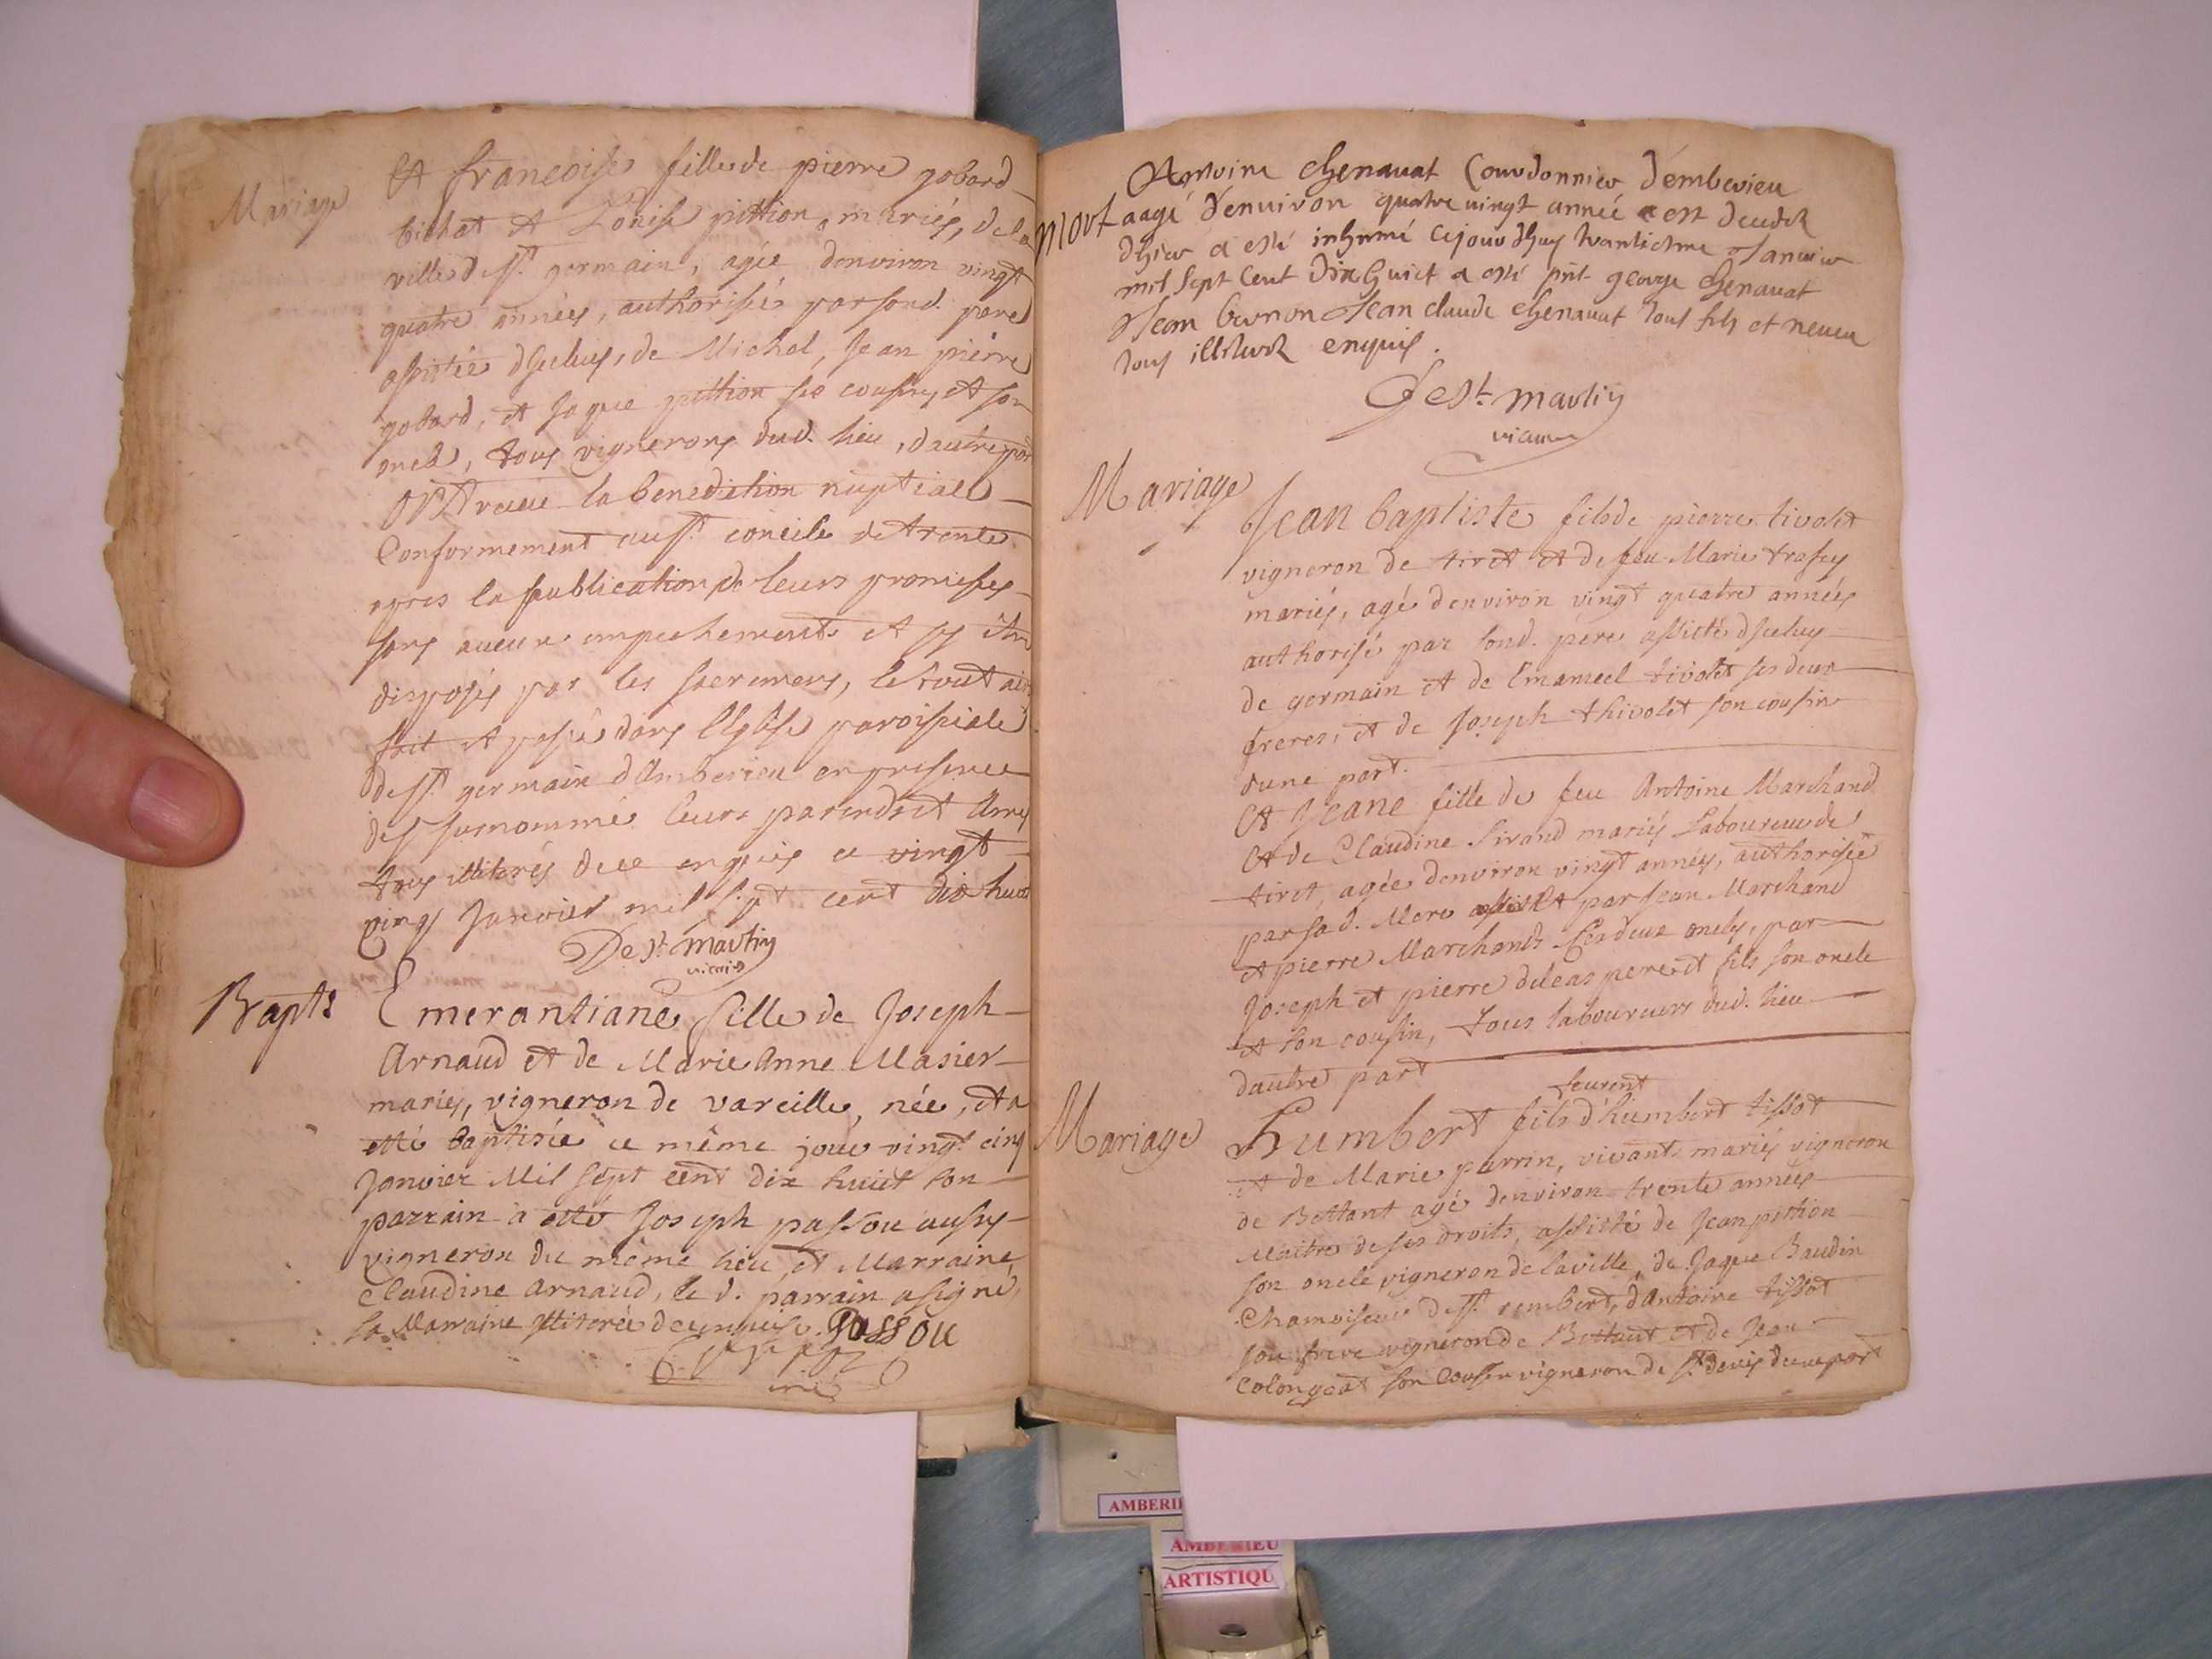 Mariage
Et francoise fille de pierre gobard
bichat et Loüise pittion, mariés, de la
ville de st. germain, agée denviron vingt
quatre années, authorisée par sond. pere
assistée d'iceluy, de Michel, Jean pierre
gobard, et Jaque pittion ses cousins et son
oncle, tous vignerons dud. lieu, d'autre part
ONT receu la benediction nuptiale
Conformement au st. concile de trente
apres la publication de leurs promesses
sans aucun empechement et sy étant
disposés par les sacremens, le tout ainsi
fait et passé dans l'Eglise paroissiale
de st. germain d'Amberieu en presence
des surnommés leurs parends et Amys
tous illiterés de ce enquis ce vingt
cinq Janvier mil sept cent dix huict
De st. martin
vicaire
Bapts
Emerantiane fille de Joseph
Arnaud et de Marie Anne Masier
mariés, vigneron de vareille, née, et a
etté baptisée ce même jour vingt cinq
Janvier Mil sept cent dix huict son
parrain a etté Joseph passou aussy
vigneron du même lieu et Marraine
Claudine arnaud, le d. parrain a signé,
la Marraine illiterée de ce enquise. Passou
Mort
Antoine chenavat Courdonnier d'emberieu
aagé d'environ quatre vingt année est decedé
d'hier a esté inhumé cejourd'huy trantiesme Janvier
mil sept cent dix huict a esté pnt. george chenavat
Jean bernon Jean claude chenavat tous fils et neveu
tous illiterés enquis.
De st. martin
vicaire
Mariage
Jean baptiste fils de pierre tivolet
vigneron de tiret et de feu Marie trafey
mariés, agé d'environ vingt quatre années
authorisé par sond. pere assisté d'iceluy
de germain et de Emanuel tivolet ses deux
freres, et de Joseph thivolet son cousin
d'une part.
Et Jeane fille de feu Antoine Marchand
et de Claudine Sirand mariés Laboureur de
tiret, agée denviron vingt années, authorisée
par sad. Mere assistée par Jean Marchand
et pierre Marchand ses deux oncles, par
Joseph et pierre duleas pere et fils son oncle
et son cousin, tous laboureurs dud. lieu
dautre part
Mariage
feurent
Humbert fils d'humbert tissot
et de Marie perrin, vivants mariés vigneron
de Bettant agé denviron trente années
Maitre de ses droits, assisté de Jean pittion
son oncle vigneron de la ville, de Jaque Baudin
Chamoiseur de st. rembert, d'Antoine tissot
son frere vigneron de Bettant et de Jean
Colongeat son Cousin vigneron de st. denis d'une part
AMBERI
AMBERIEU
ARTISTIQU